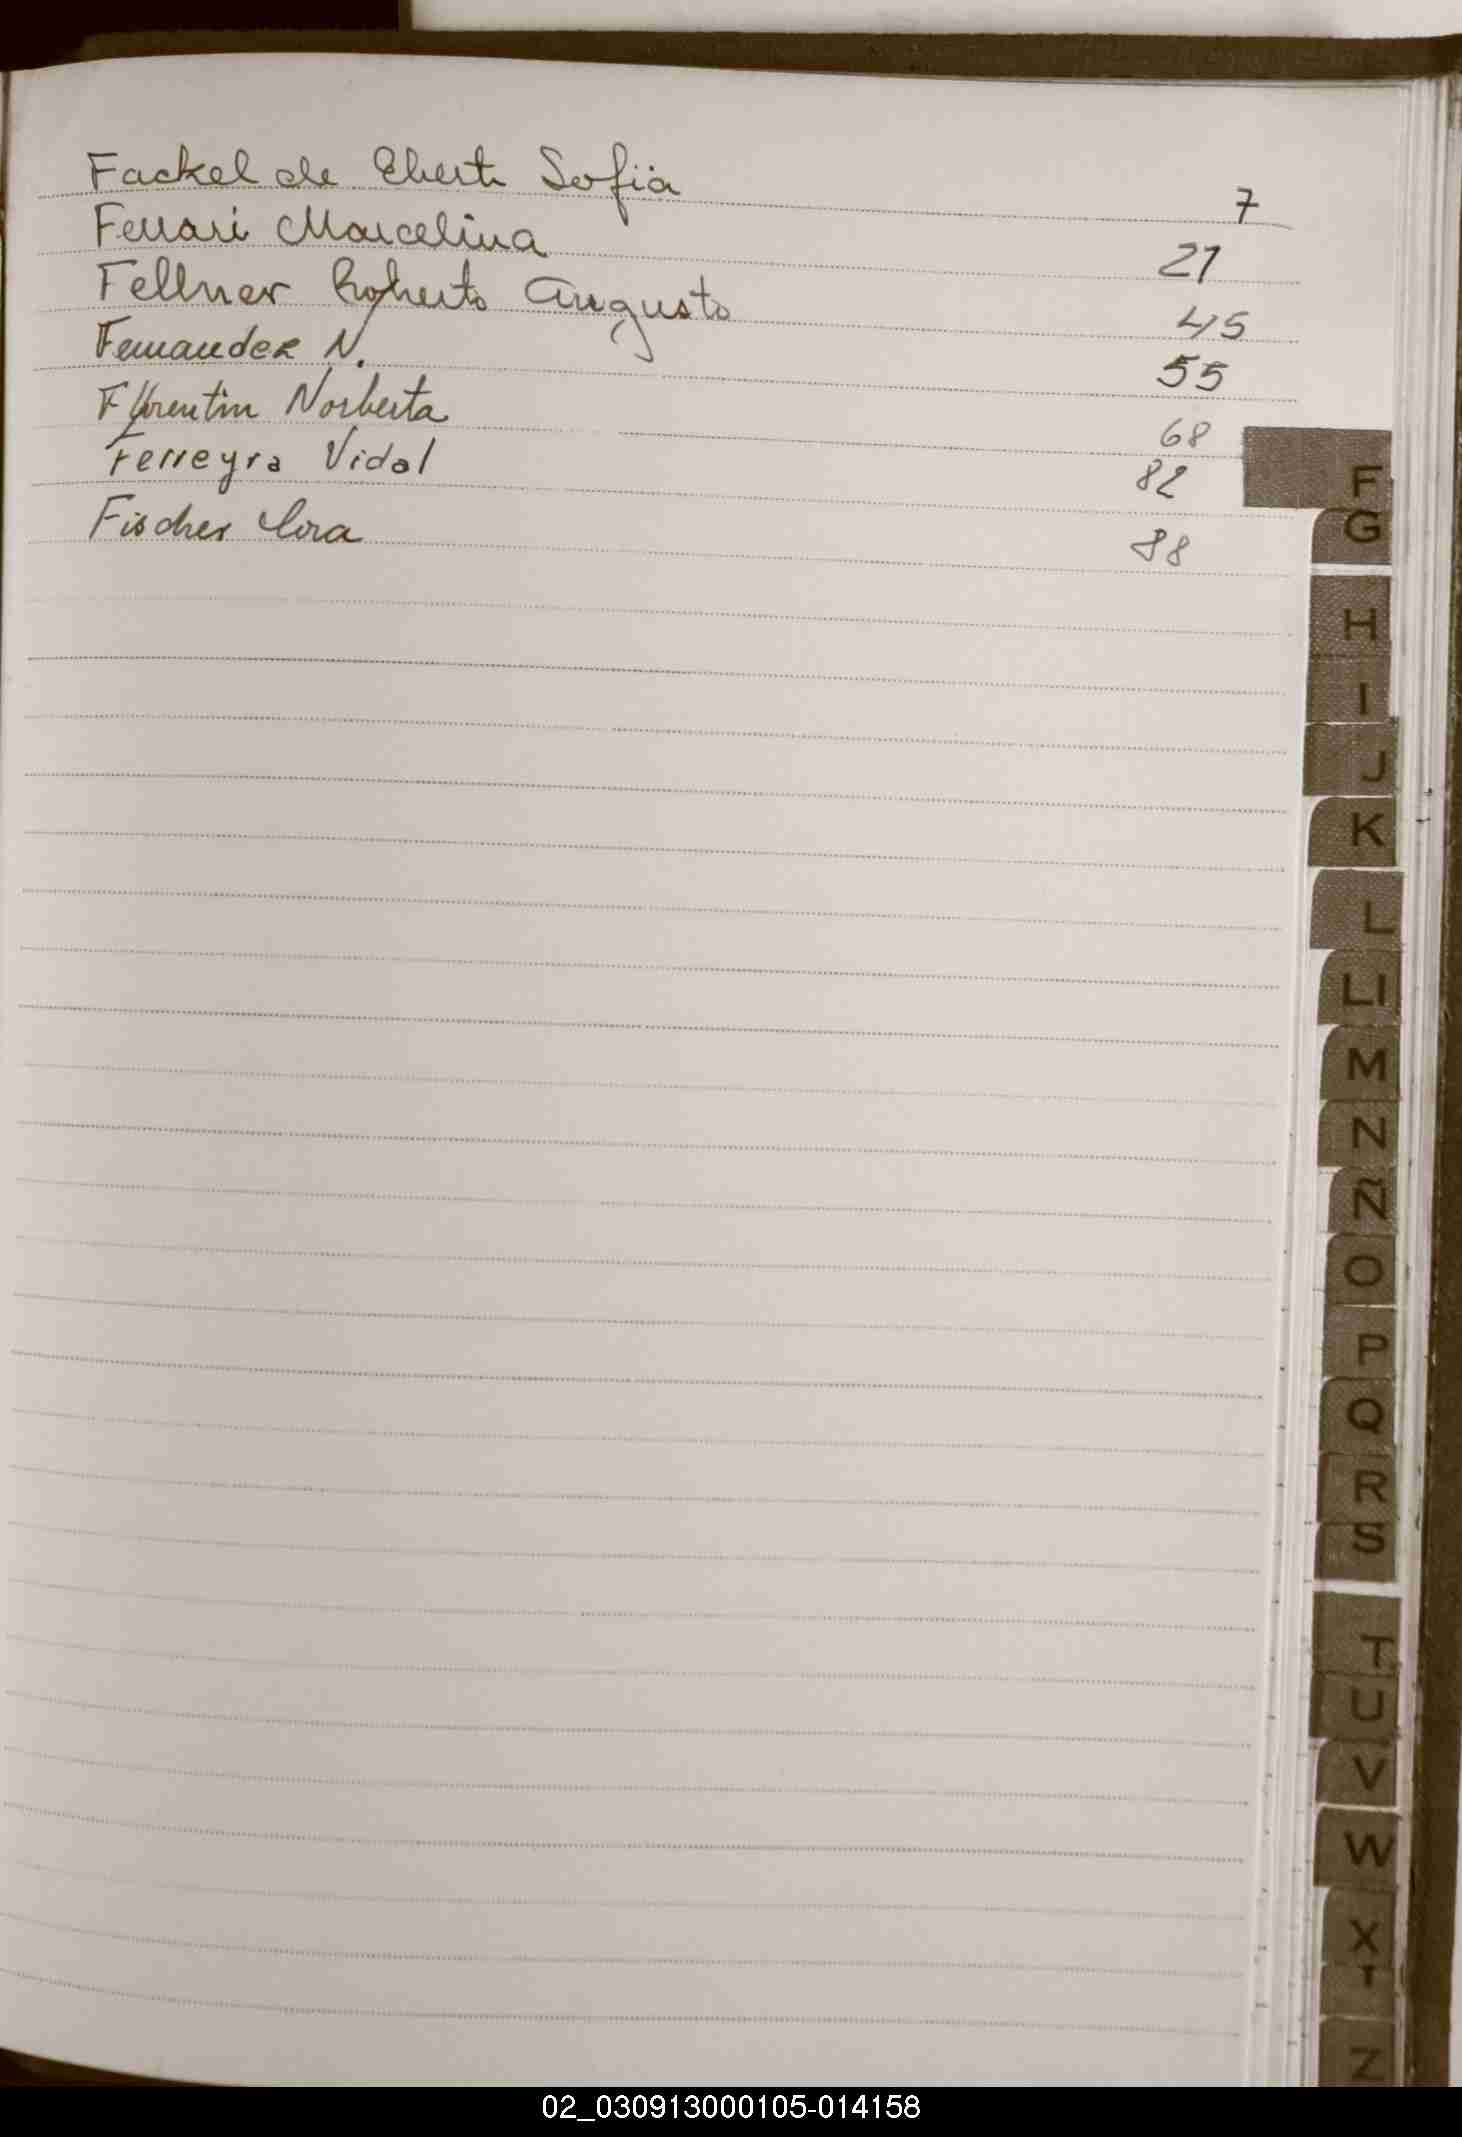 Fackel de Ebert Sofia 7
Ferrari Marcelina 21
Fellner Roberto Augusto 45
Fernandez N. 55
Florentin Norberta 68
Ferreyra Vidal 82
Fischer 88
F
G
H
I
J
K
L
Ll
M
N
Ñ
O
P
Q
R
S
T
U
V
W
X
Z
02_030913000105-014158